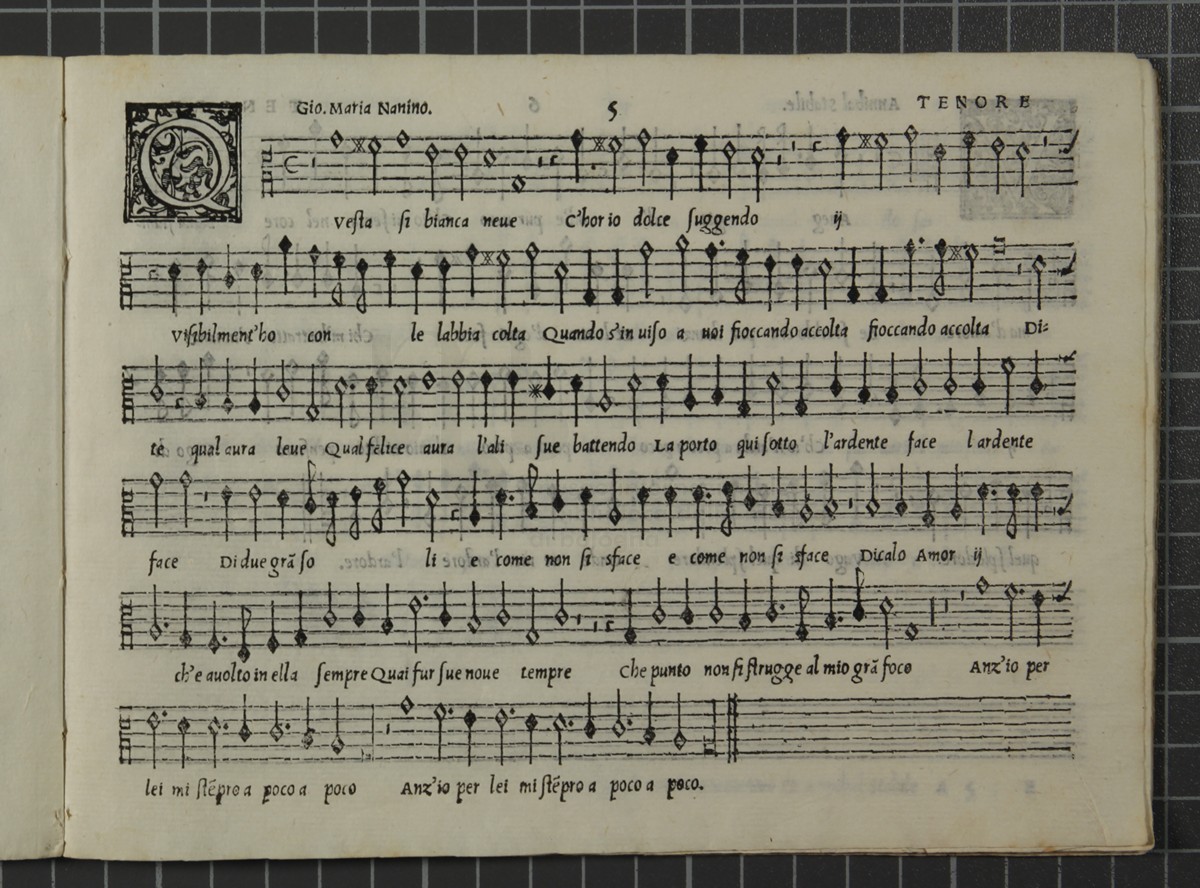 Gio. Maria Nanino. 5 TENORE
QVesta si bianca neue C'hor io dolce suggendo ij
Visibilment'ho con le labbia colta Quando s'in uiso a uoi fioccando accolta fioccando accolta Di-
te qual aura leue Qual felice aura l'ali sue battendo La porto qui sotto l'ardente face l ardente
face Di due grã so li e come non si sface e come non si sface Dicalo Amor ij
ch'e auolto in ella sempre Quai fur sue noue tempre Che punto non si strugge al mio grã foco Anz'io per
lei mi stẽpro a poco a poco Anz'io per lei mi stẽpro a poco a poco.